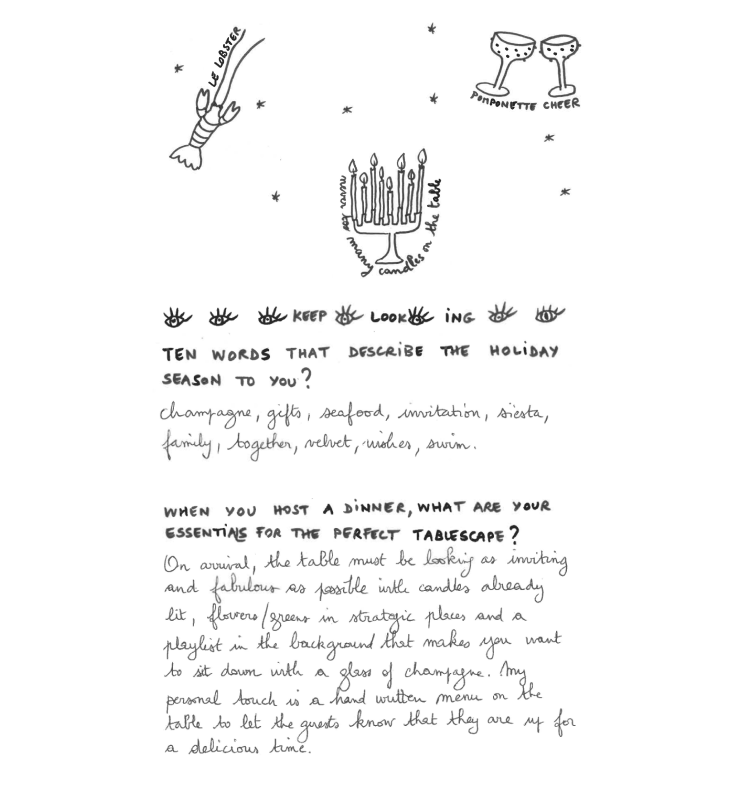 LE LOBSTER
POMPONETTE CHEER
never too many candles on the table
KEEP LOOK ING
TEN WORDS THAT DESCRIBE THE HOLIDAY
SEASON TO YOU?
champagne, gifts, seafood, invitation, siesta,
family, together, velvet, wishes, swim.
WHEN YOU HOST A DINNER, WHAT ARE YOUR
ESSENTIALS FOR THE PERFECT TABLESCAPE?
On arrival, the table must be looking as inviting
and fabulous as possible with candles already
lit, flowers/greens in strategic places and a
playlist in the background that makes you want
to sit down with a glass of champagne. My
personal touch is a hand written menu on the
table to let the guests know that they are up for
a delicious time.